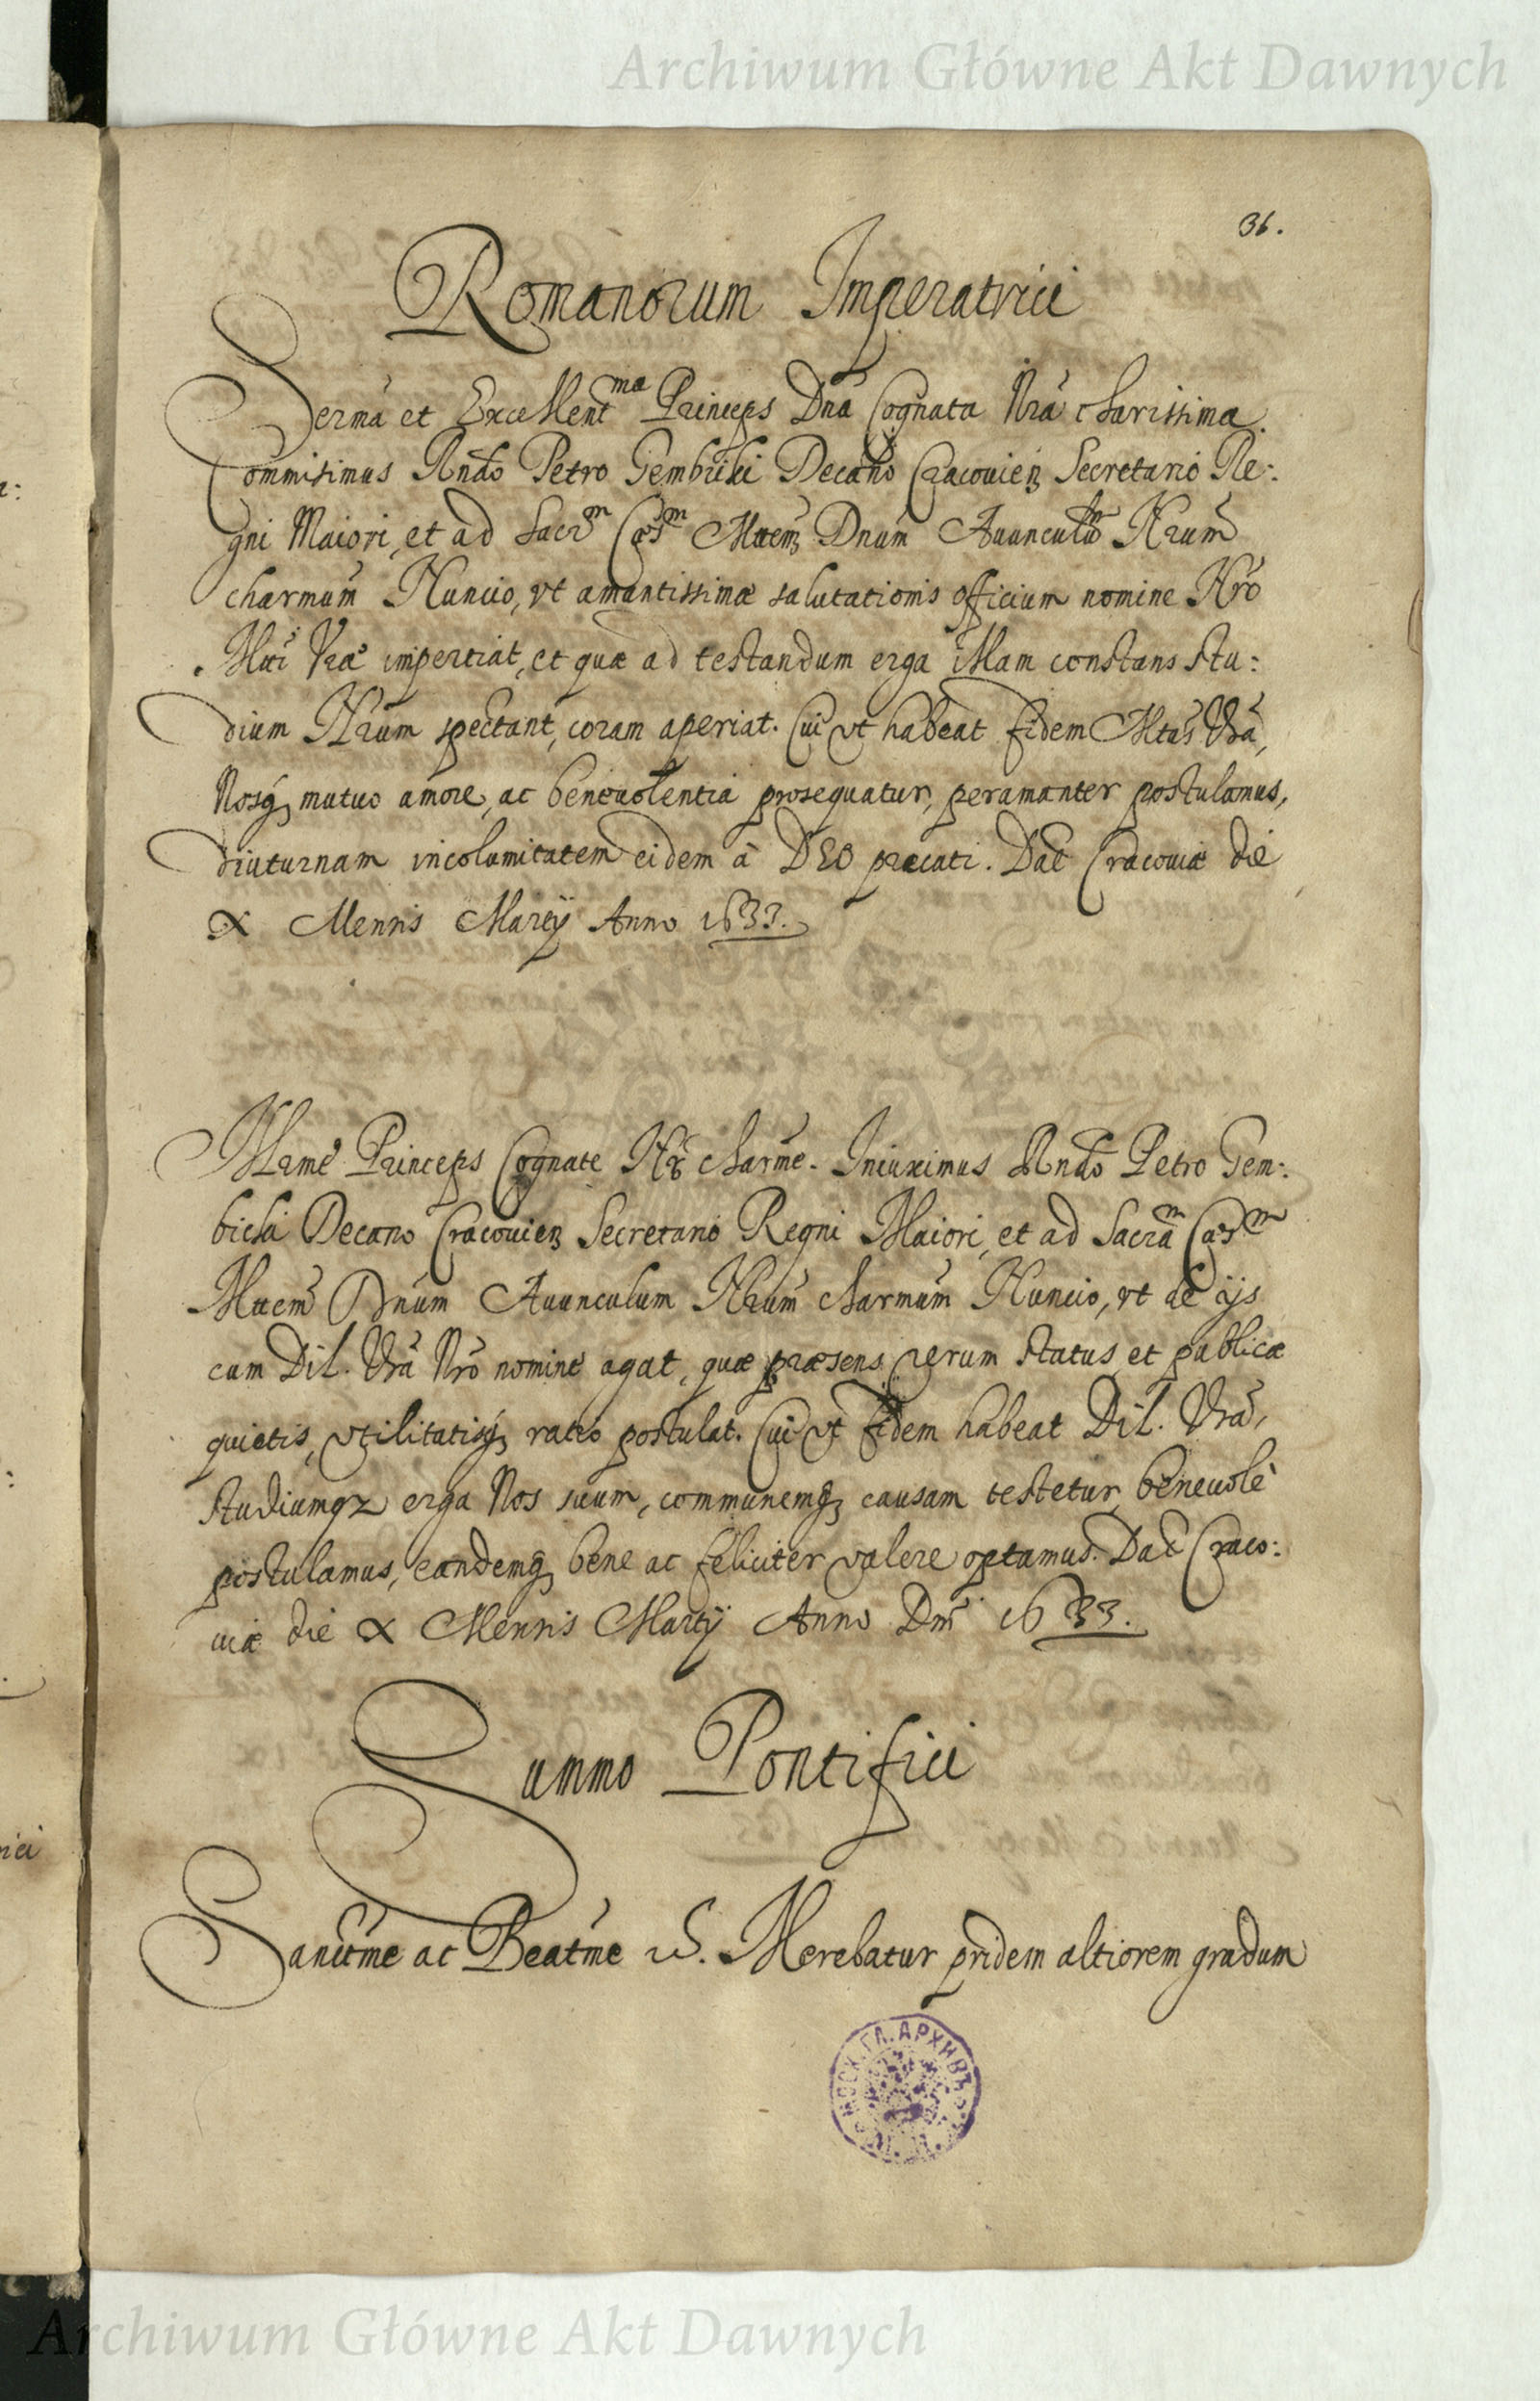 Archiwum Główne Akt Dawnych
36.
Romanorum Imperatrici
Serma et Excellentma Princeps Dna Cognata Nra charissima.
Commisimus Rndo Petro Gembicki Decano Cracouien Secretario Re:
gni Maiori, et ad Sacrm Caesm Mttem Dnum Auunculum Nrum
charmum Nuncio, vt amantissimae salutationis officium nomine Nro
Mtti Vrae impertiat, et quae ad testandum erga illam constans stu:
dium Nrum spectant, coram aperiat. Cui vt habeat fidem Mtas Vra,
Nosq mutuo amore, ac beneuolentia prosequatur, peramanter postulamus,
diuturnam incolumitatem eidem à DEO precati. Dat Cracouiae die
X Mensis Martij Anno 1633.
Illrme Princeps Cognate Nr charme. Iniunximus Rndo Petro Gem:
bicki Decano Cracouien Secretario Regni Maiori, et ad Sacram Caesm
Mttem Dnum Auunculum Nrum charmum Nuncio, vt de ijs
cum Dil. Vra Nro nomine agat, quae praesens rerum status, et publicae
quietis, vtilitatisq ratio postulat. Cui vt fidem habeat Dil. Vra,
studiumqz erga Nos suum, communemq causam testetur, beneuolè
postulamus, eandemq bene ac feliciter valere optamus. Dat Craco:
uiae die X Mensis Martij Anno Dni 1633.
Summo Pontifici
Sanctme ac Beatme etc. Merebatur pridem altiorem gradum
МОСК. ГЛ. АРХИВЪ
Archiwum Główne Akt Dawnych